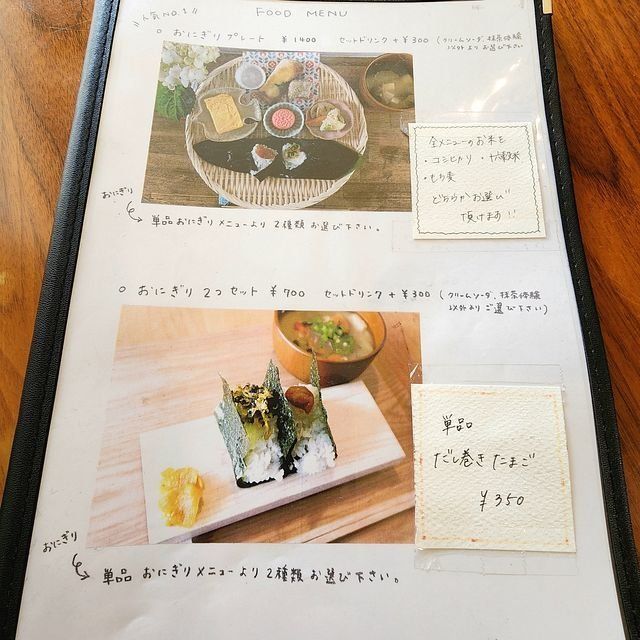 人気NO.1
FOOD MENU
○ おにぎりプレート ¥1400 セットドリンク+¥300 (クリームソーダ、抹茶体験
以外よりお選び下さい
全メニューのお米を
・コシヒカリ ・十穀米
・もち麦
どちらかお選び
頂けます!!
おにぎり
単品おにぎりメニューより2種類お選び下さい。
○ おにぎり 2つセット ¥700 セットドリンク+¥300 (クリームソーダ、抹茶体験
以外よりご選び下さい)
単品
だし巻きたまご
¥350
おにぎり
単品 おにぎりメニューより2種類お選び下さい。